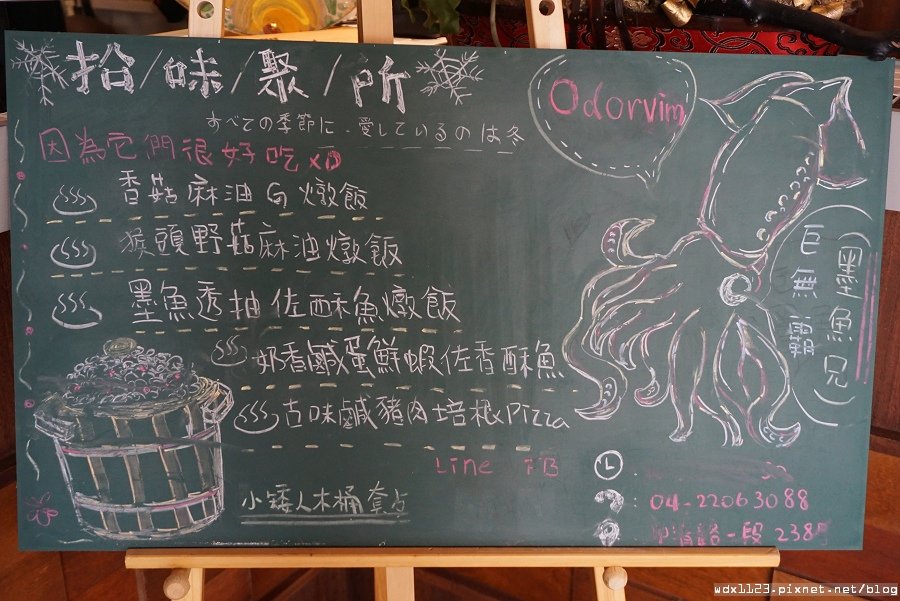 拾/味/聚/所
すべての季節に、愛しているのは冬
因為它們很好吃XD
香菇麻油G燉飯
猴頭野菇麻油燉飯
墨魚透抽佐酥魚燉飯
奶香鹹蛋鮮蝦佐香酥魚
古味鹹豬肉培根Pizza
Line FB
小矮人木桶套
Odorvim
(墨魚兄)
巨無霸
04-22063088
路一段 238
wdx1123.pixnet.net/blog